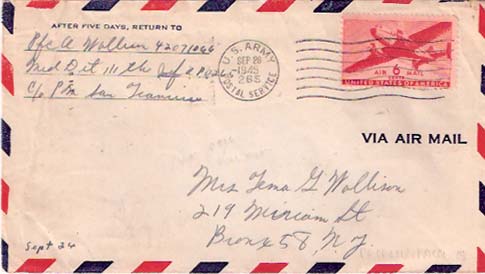 AFTER FIVE DAYS, RETURN TO
Pfc A Wollison 42071066
Med Det 111th Inf A.P.O.
C/o P.M. San Francisco
U.S. ARMY
SEP 26
1945
265
POSTAL SERVICE
AIR 6 MAIL
CENTS
UNITED STATES OF AMERICA
VIA AIR MAIL
Mrs Tema G Wollison
219 Miriam St
Bronx 58, N.Y.
Sept 24